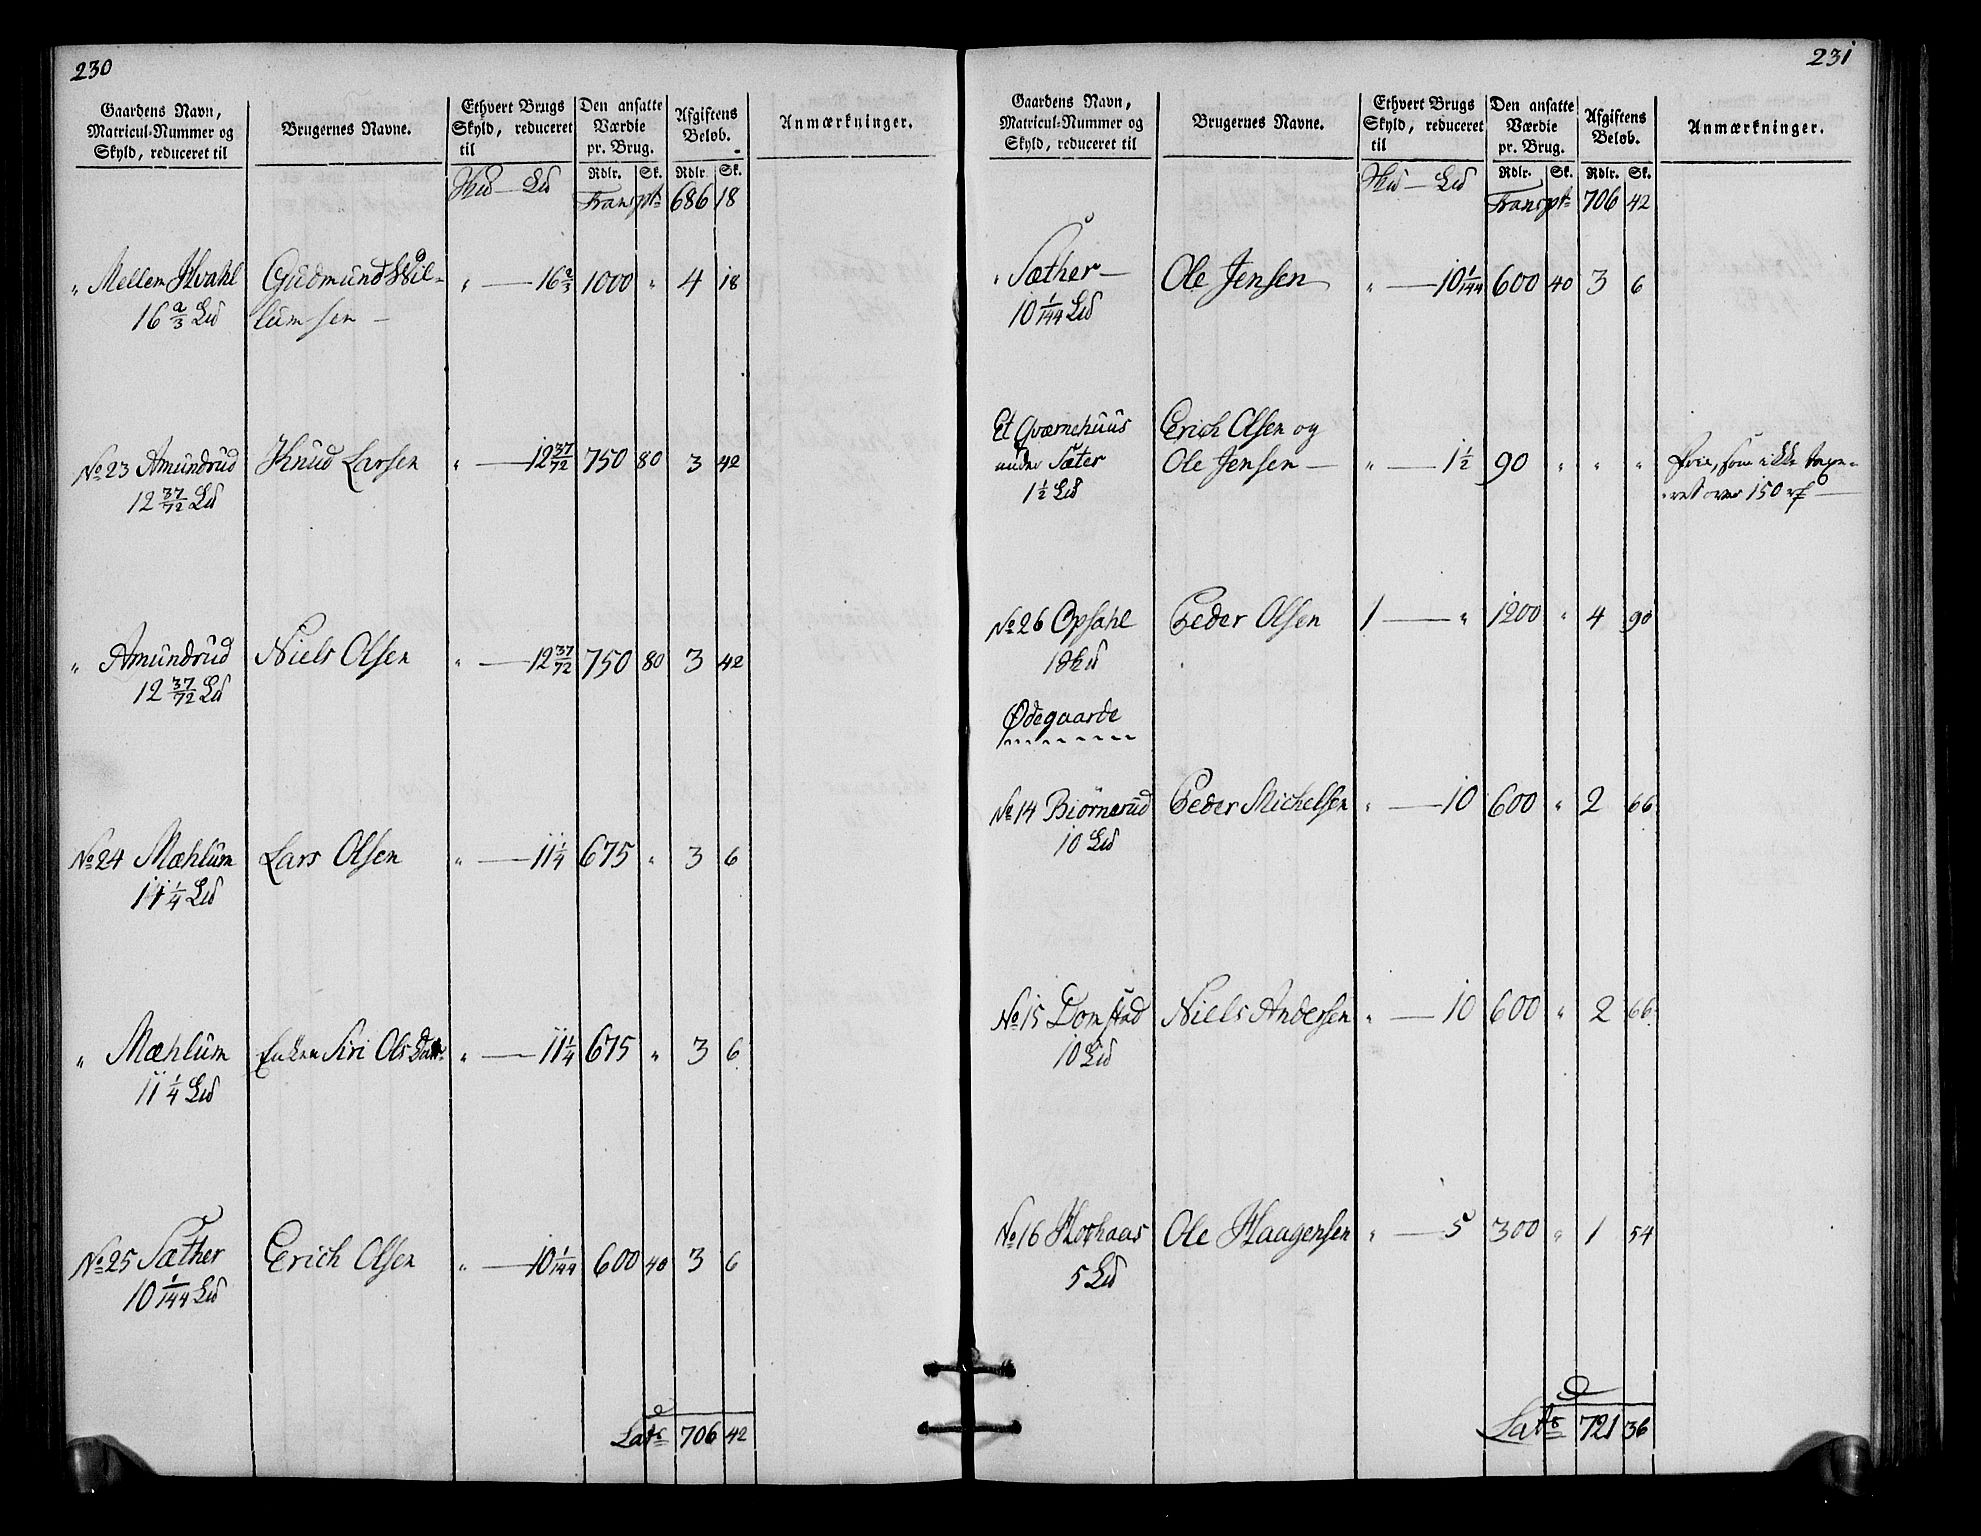 230
Gaardens Navn, Matricul-Nummer og Skyld, reduceret til
Brugernes Navne.
Ethvert Brugs Skyld, reduceret til
Den ansatte Værdie pr. Brug.
Afgiftens Beløb.
Anmærkninger.
Rdlr. Sk. Rdlr. Sk.
Hud — Ld Transpt 686 18
„ Mellem Hvahl Gudmund Wil- „ — 16 2/3 1000 „ 4 18
16 2/3 Ld lumsen —
No 23 Amundrud Knud Larsen „ — 12 37/72 750 80 3 42
12 37/72 Ld
„ Amundrud Niels Olsen „ — 12 37/72 750 80 3 42
12 37/72 Ld
No 24 Mæhlum Lars Olsen „ — 11 1/4 675 „ 3 6
11 1/4 Ld
„ Mæhlum Enken Siri Olsdatr „ — 11 1/4 675 „ 3 6
11 1/4 Ld
No 25 Sæther Erich Olsen „ — 10 1/144 600 40 3 6
10 1/144 Ld
Lats 706 42
231
Gaardens Navn, Matricul-Nummer og Skyld, reduceret til
Brugernes Navne.
Ethvert Brugs Skyld, reduceret til
Den ansatte Værdie pr. Brug.
Afgiftens Beløb.
Anmærkninger.
Rdlr. Sk. Rdlr. Sk.
Hud — Ld Transpt 706 42
„ Sæther — Ole Jensen „ — 10 1/144 600 40 3 6
10 1/144 Ld
Et Qværnehuus Erich Olsen og
under Sæter Ole Jensen — „ — 1 1/2 90 „ „ „ Frie, som ikke taxe-
1 1/2 Ld ret over 150 rd —
No 26 Opsahl Peder Olsen 1 — „ 1200 „ 4 90
1 Hud
Ødegaarde
No 14 Biörnerud Peder Michelsen „ — 10 600 „ 2 66
10 Ld
No 15 Domstad Niels Andersen „ — 10 600 „ 2 66
10 Ld
No 16 Ole Haagensen „ — 5 300 „ 1 54
5 Ld
Lats 721 36